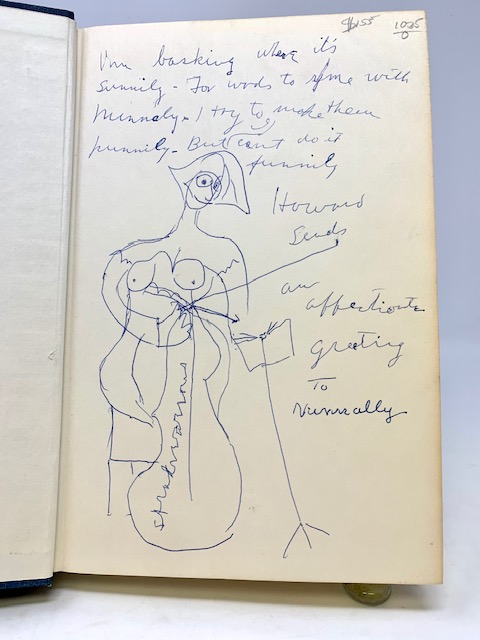 I'm basking where it's
sunnily - For words to ryme with
Nunnaly - I try to make them
punnily - But I can't do it
funnily
Howard
Sends
an
affectionate
greeting
To
Nunnally